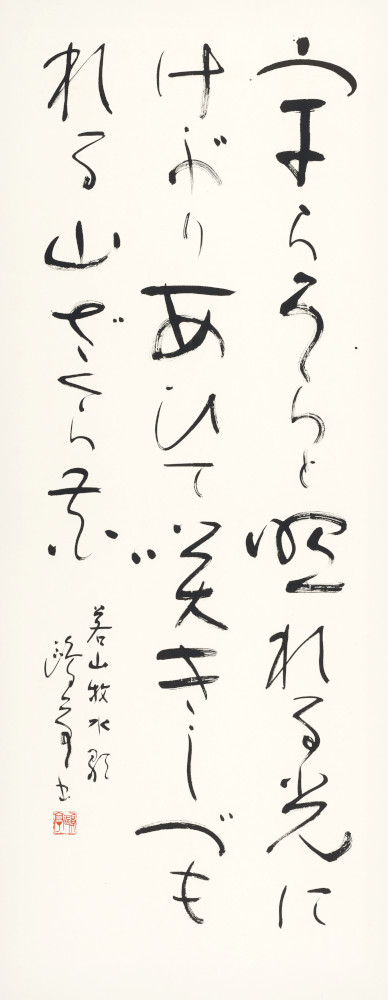 宇らうらと照れる光に
けぶりあひて咲きしづも
れる山ざくら花
若山牧水歌
鷗亭書